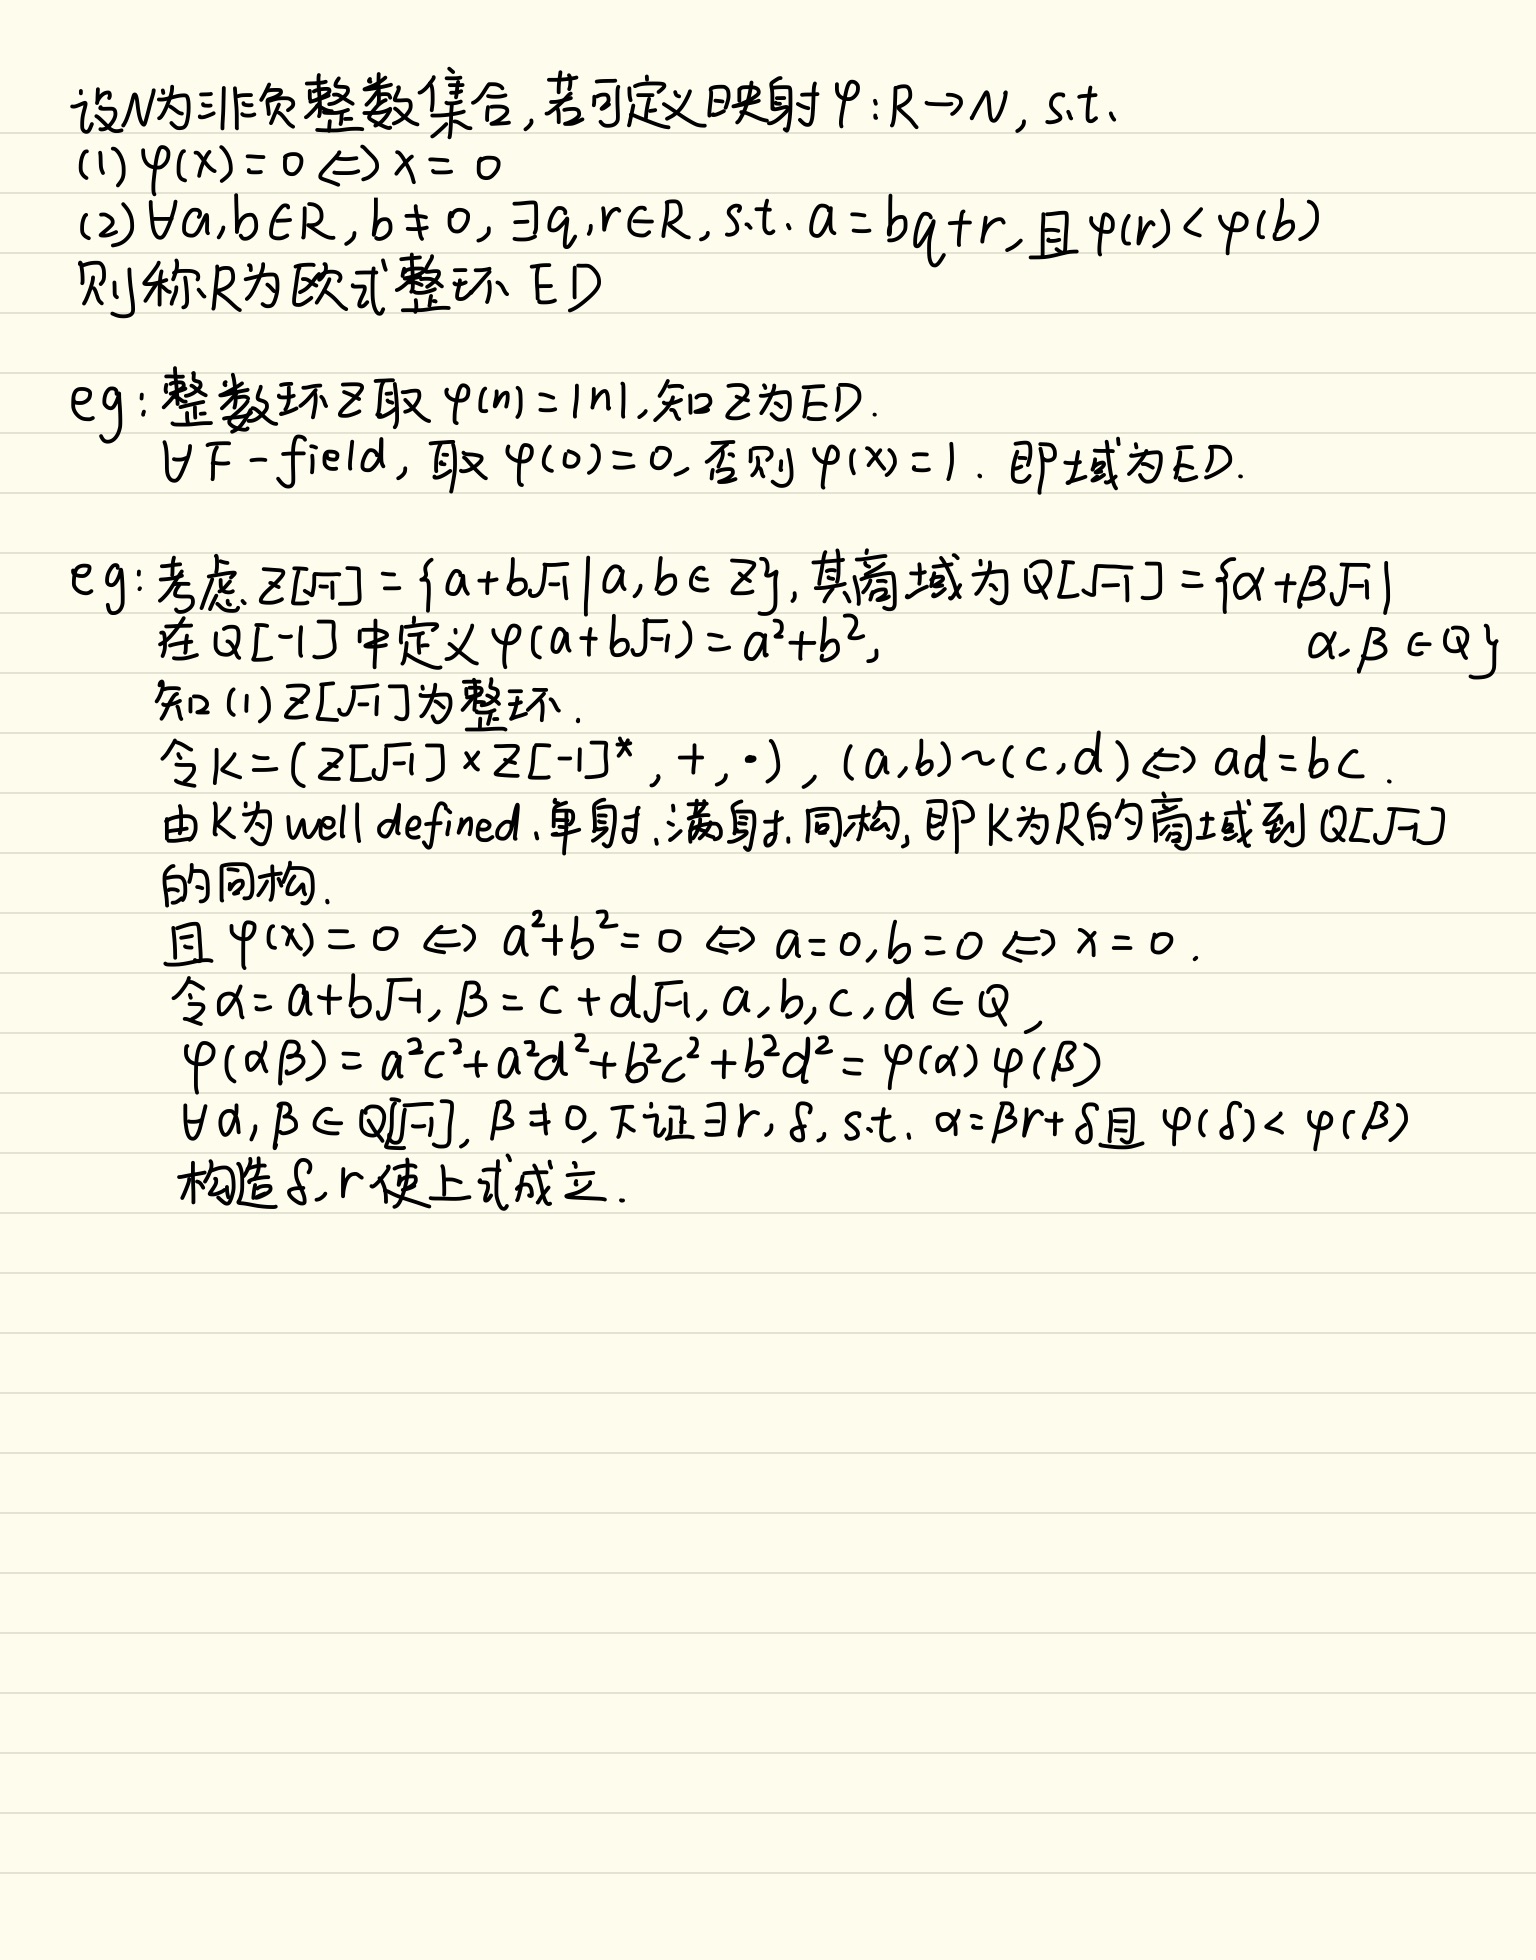 设N为非负整数集合,若可定义映射φ:R→N, s.t.
(1) φ(x)=0⇔x=0
(2) ∀a,b∈R, b≠0, ∃q,r∈R, s.t. a=bq+r, 且φ(r)<φ(b)
则称R为欧式整环 ED
eg: 整数环Z取φ(n)=|n|,知Z为ED.
∀F-field, 取φ(0)=0,否则φ(x)=1. 即域为ED.
eg: 考虑Z[√-1]={a+b√-1|a,b∈Z},其商域为Q[√-1]={α+β√-1|
α,β∈Q}
在Q[-1]中定义φ(a+b√-1)=a²+b²,
知(1)Z[√-1]为整环.
令K=(Z[√-1]×Z[-1]*,+,·), (a,b)~(c,d)⇔ad=bc.
由K为well defined、单射、满射、同构,即K为R的商域到Q[√-1]
的同构.
且φ(x)=0⇔a²+b²=0⇔a=0,b=0⇔x=0.
令α=a+b√-1, β=c+d√-1, a,b,c,d∈Q,
φ(αβ)=a²c²+a²d²+b²c²+b²d²=φ(α)φ(β)
∀α,β∈Q[√-1], β≠0,下证∃r,δ, s.t. α=βr+δ且φ(δ)<φ(β)
构造δ,r使上式成立.